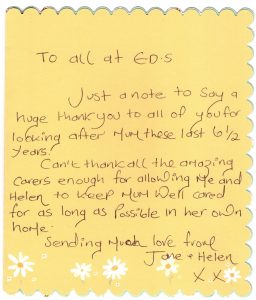 To all at E.D.S
Just a note to say a
huge thank you to all of you for
looking after Mum these last 6 1/2
years!
Can't thank all the amazing
carers enough for allowing Me and
Helen to keep Mum well cared
for as long as possible in her own
home.
Sending Much love from
Jane & Helen
X X